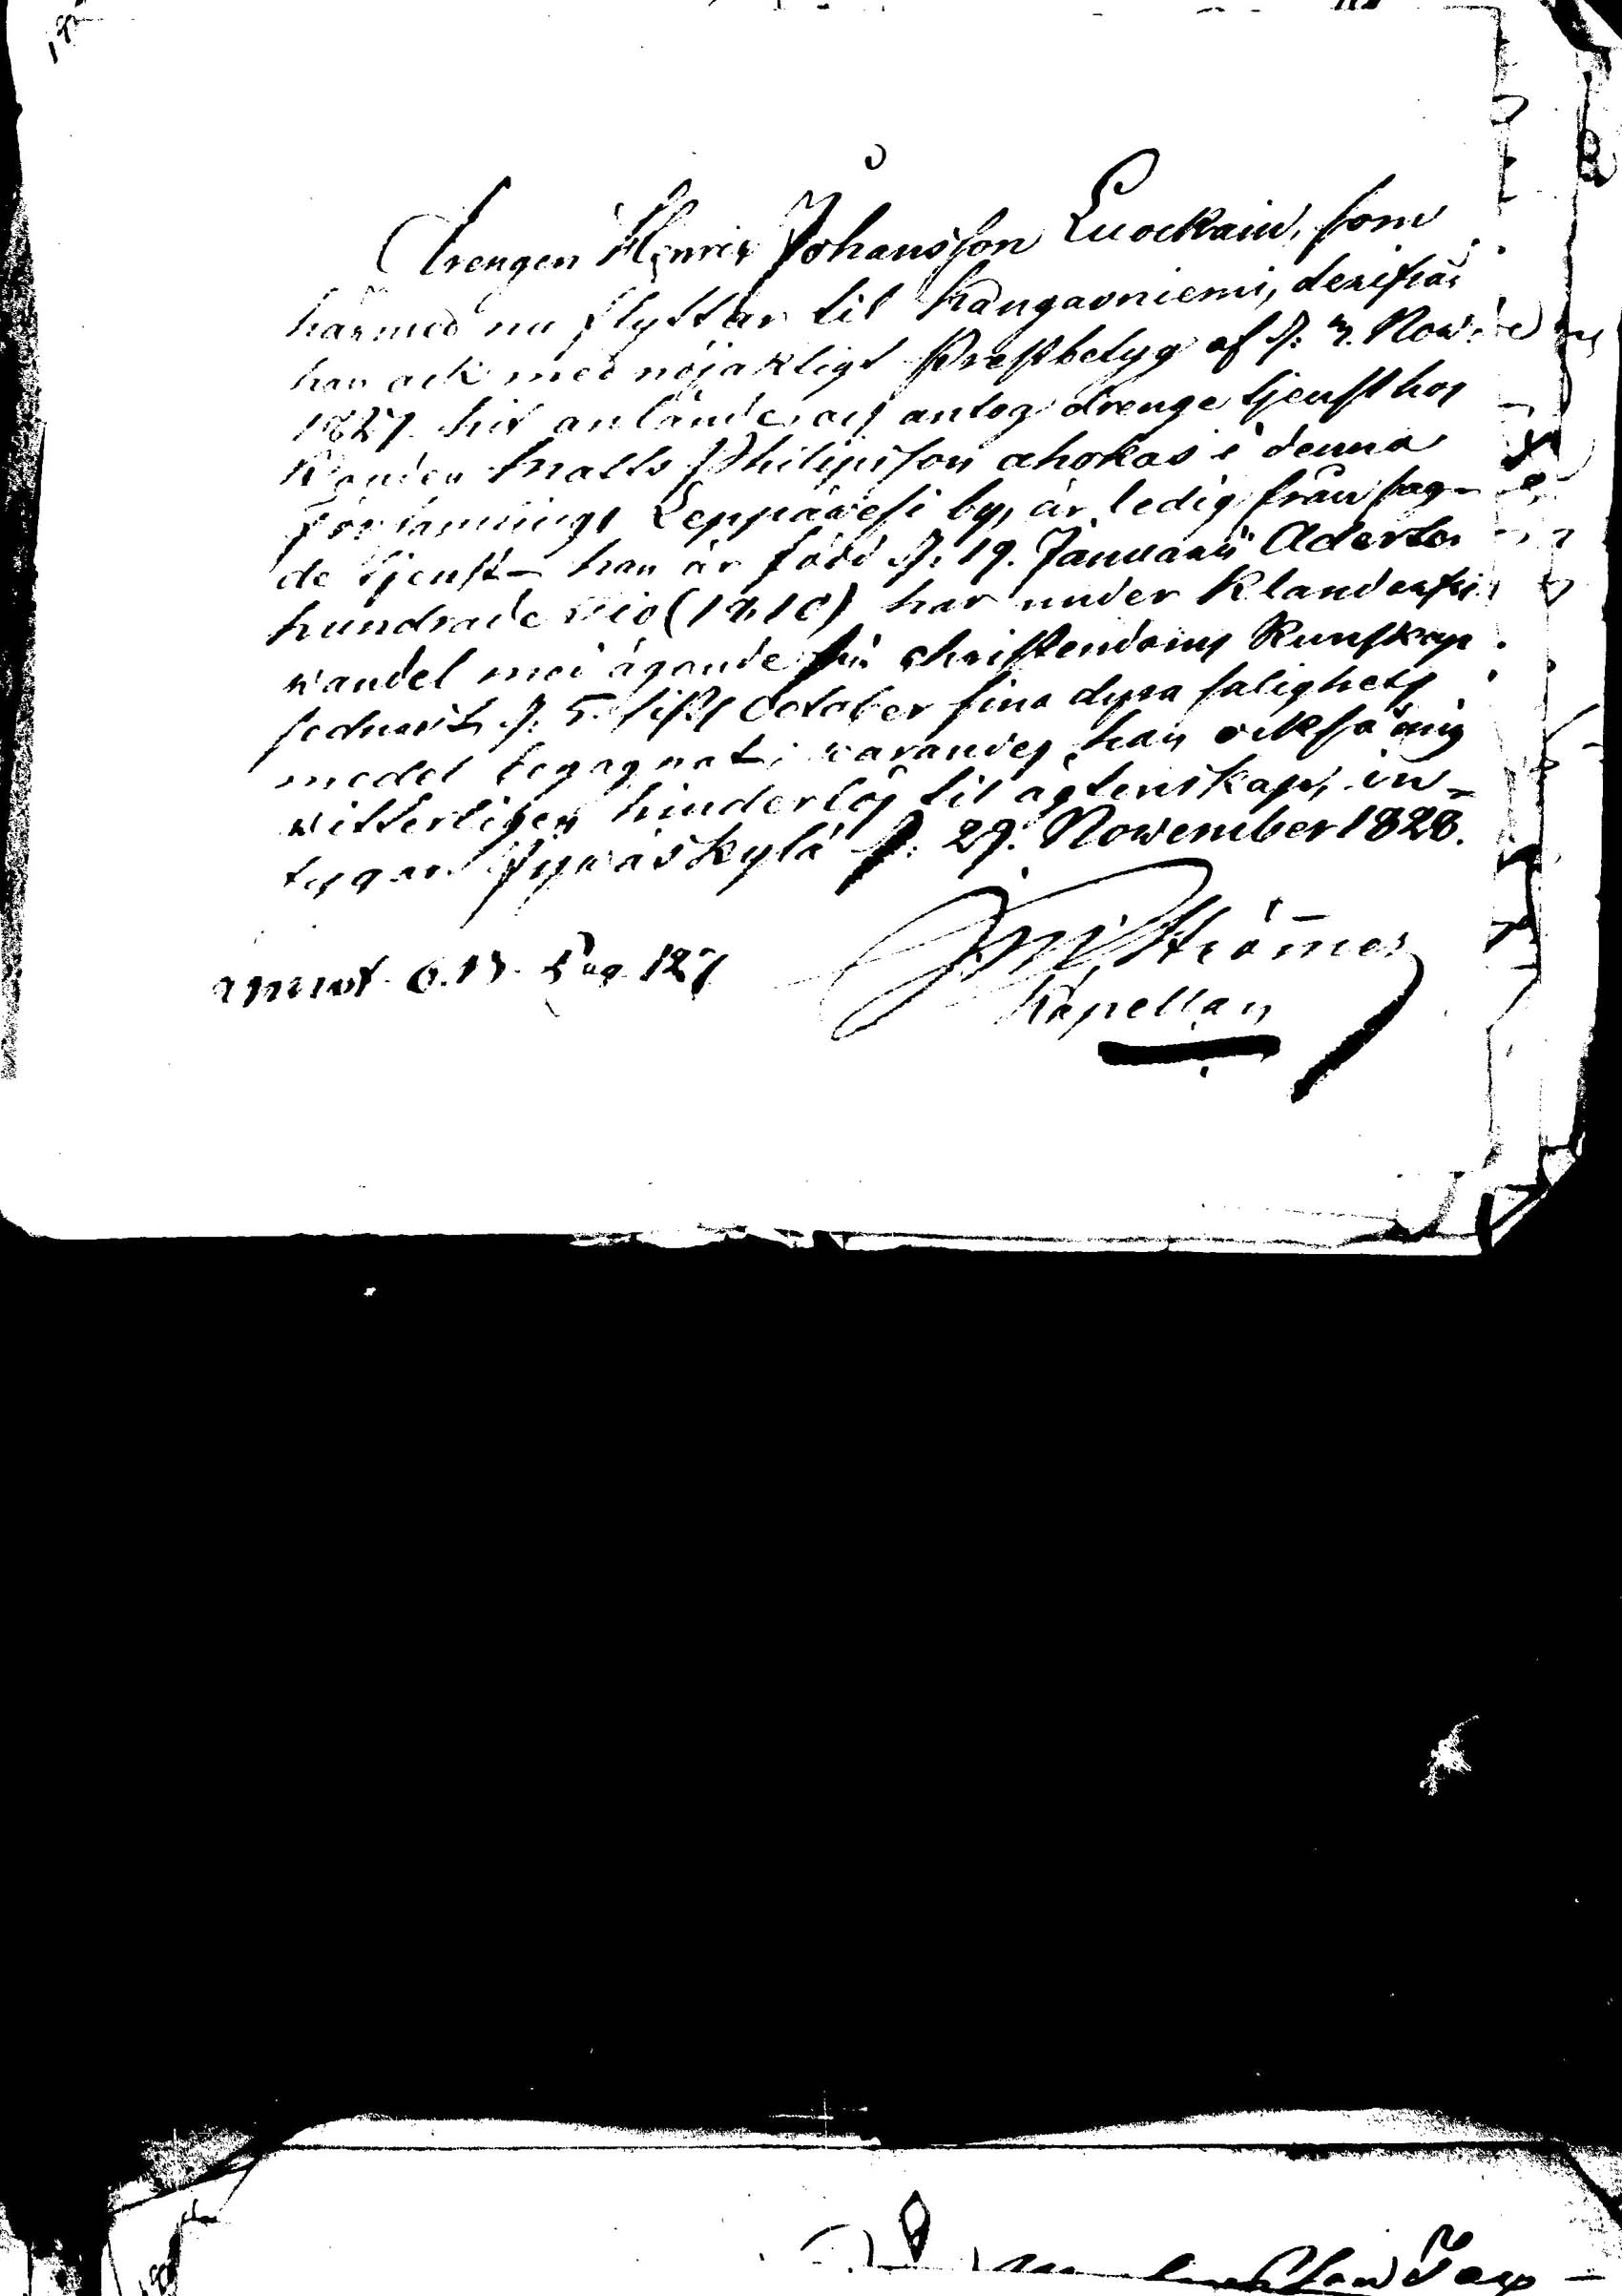 Drengen Henric Johansson Luockain, som
härmed nu flyttar til Kangasniemi, derifrån
han ock med nöjaktigt Prestbetyg af d: 3. Nov:
1827 hit anlände och antog drenge tjenst hos
Bonden Matts Philipsson Ahokas i denna
Församlings Leppävesi by, är ledig från sag-
de tjenst – han är född d: 19. Januarii Aderton
hundrade Tio (1810) har under Klanderfri
wandel med ägande christendoms Kunskap
sednast d: 5. sistl October sina dyra salighets
medel begagnat; warandes han också mig
witterligen hinderlös til ägtenskap, in-
tygar Jywäskylä d: 29. November 1828.
Strömer
Kapellan
annot. Pag. 127